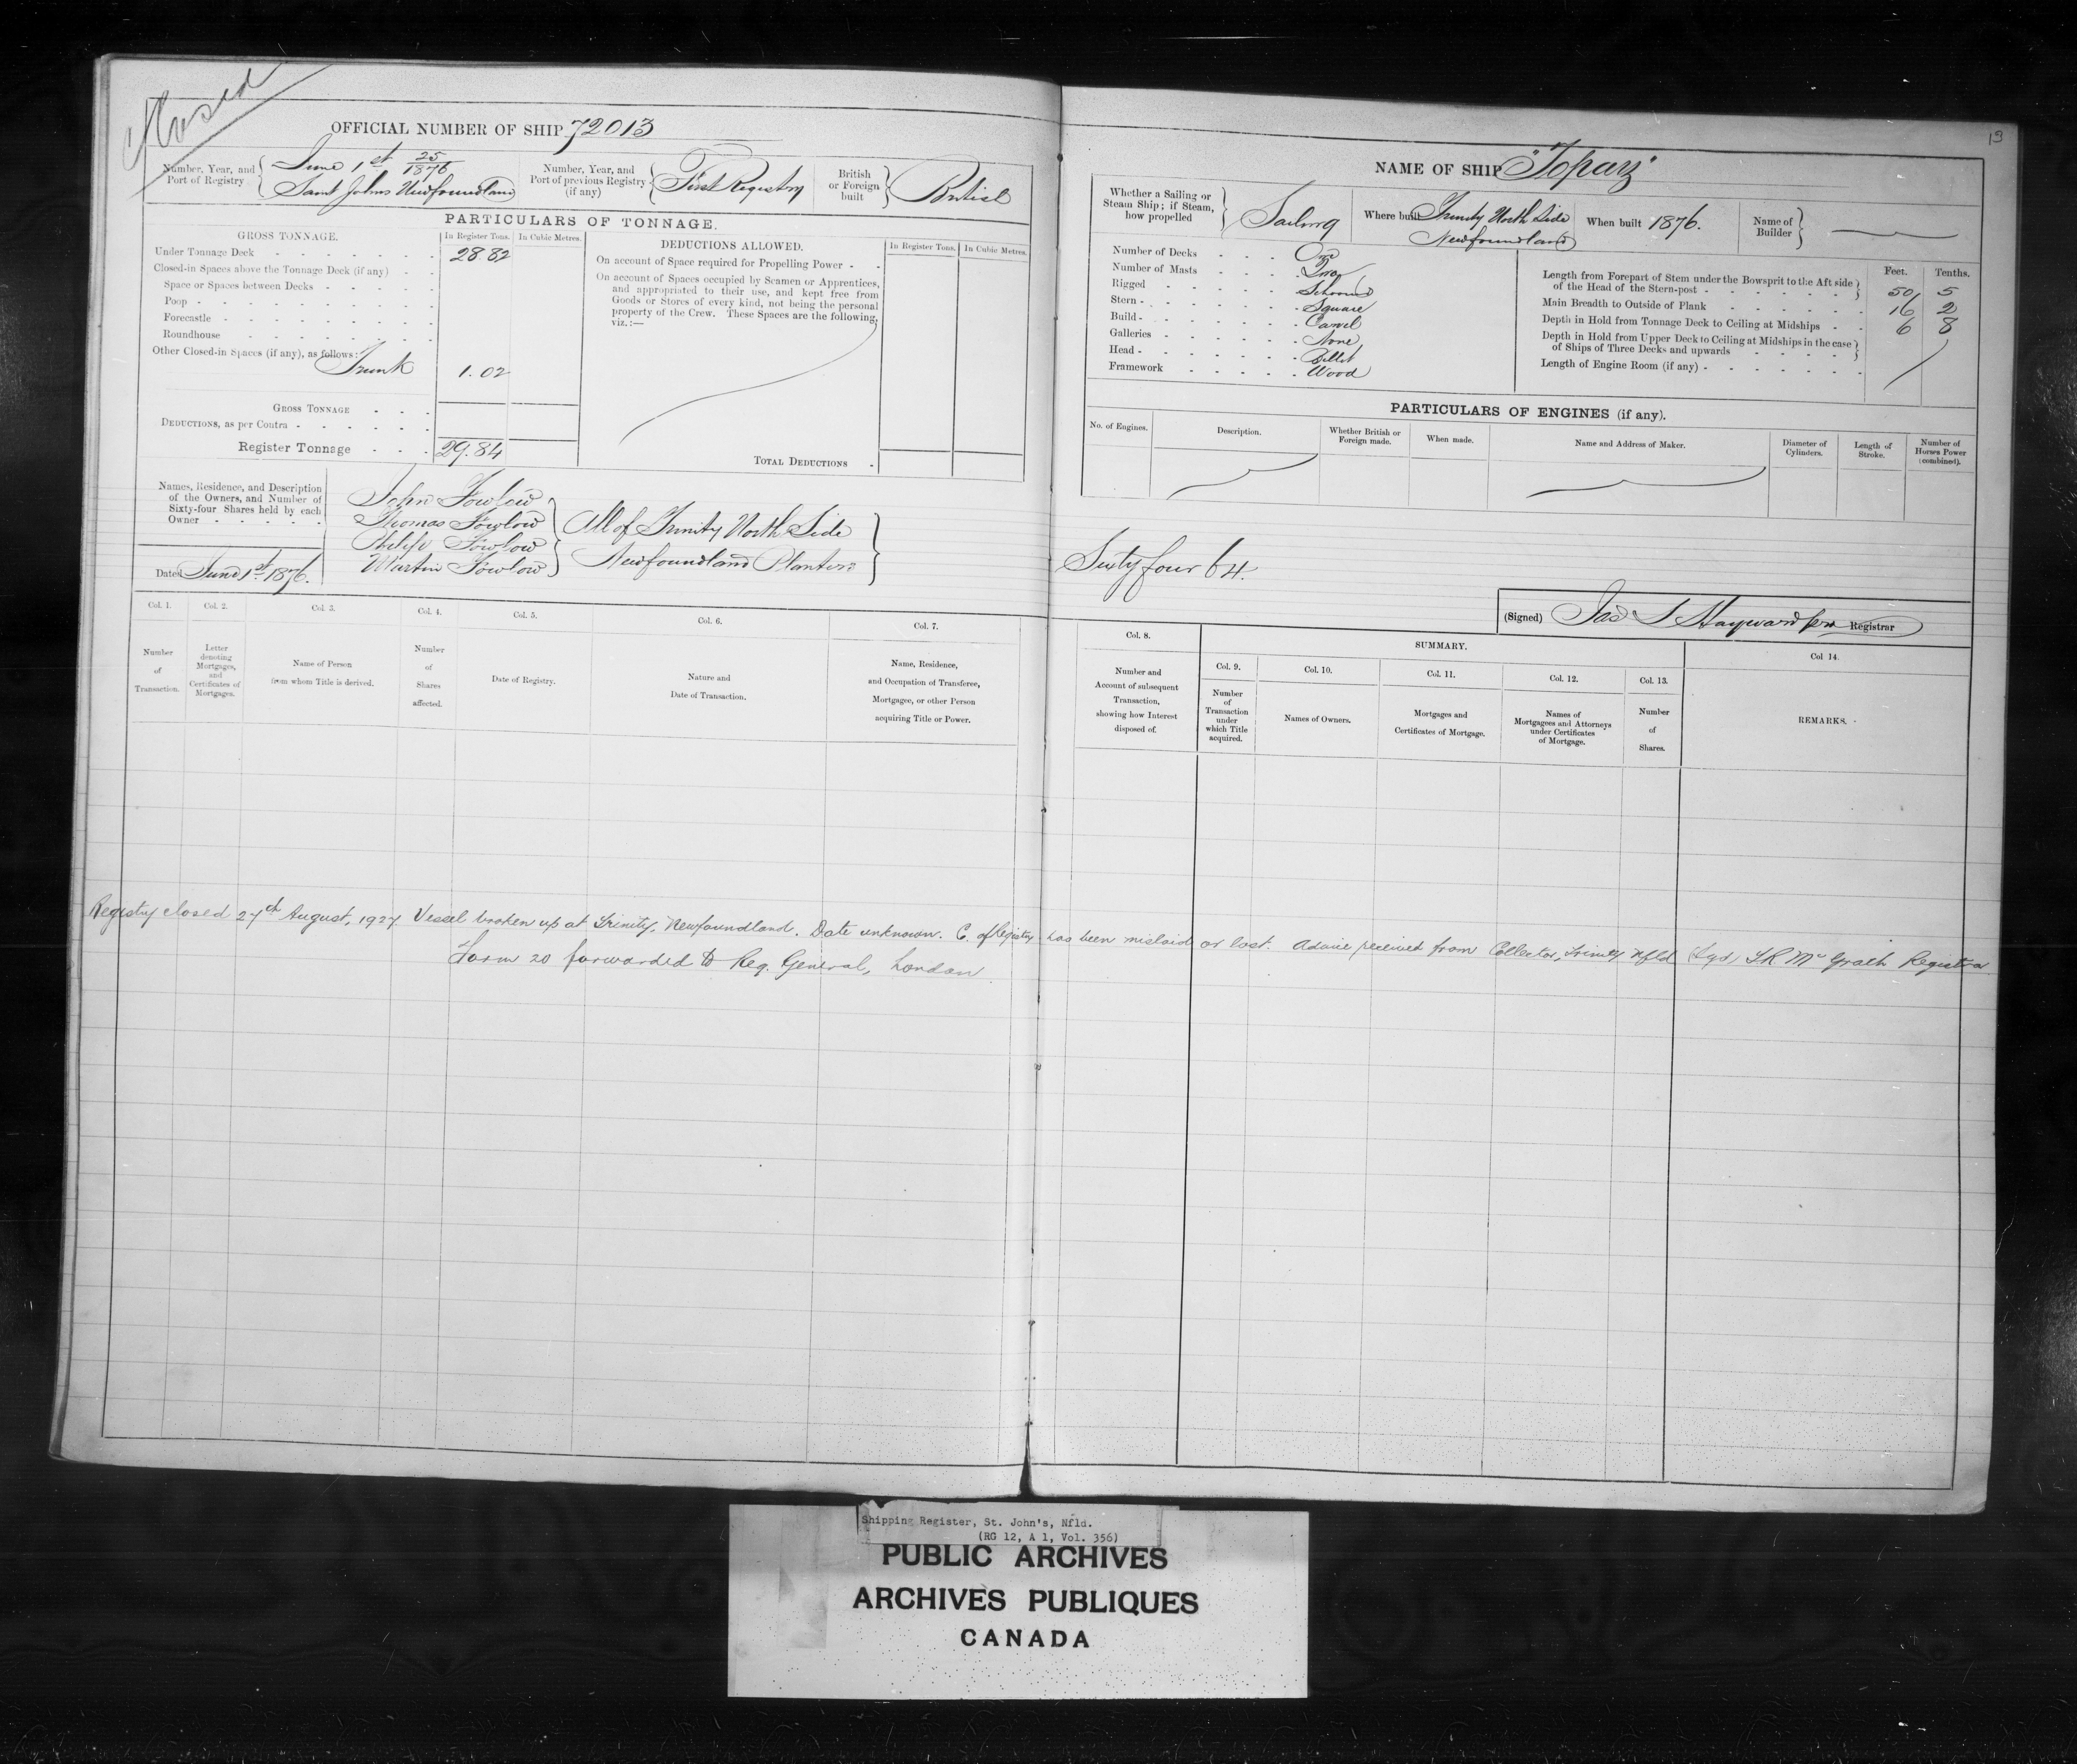 Closed
OFFICIAL NUMBER OF SHIP 72013
Number, Year, and Port of Registry
June 1st 25/1876
Saint Johns Newfoundland
Number, Year, and Port of previous Registry (if any)
First Registry
British or Foreign built
British
PARTICULARS OF TONNAGE.
GROSS TONNAGE.
In Register Tons.
In Cubic Metres.
Under Tonnage Deck 28.82
Closed-in Spaces above the Tonnage Deck (if any)
Space or Spaces between Decks
Poop
Forecastle
Roundhouse
Other Closed-in Spaces (if any), as follows:
Trunk 1.02
GROSS TONNAGE
DEDUCTIONS, as per Contra
Register Tonnage 29.84
DEDUCTIONS ALLOWED.
In Register Tons.
In Cubic Metres.
On account of Space required for Propelling Power
On account of Spaces occupied by Seamen or Apprentices,
and appropriated to their use, and kept free from
Goods or Stores of every kind, not being the personal
property of the Crew. These Spaces are the following,
viz.:—
TOTAL DEDUCTIONS
Names, Residence, and Description
of the Owners, and Number of
Sixty-four Shares held by each
Owner
John Fowlow
Thomas Fowlow
Philip Fowlow
Martin Fowlow
All of Trinity North Side
Newfoundland Planters
Dated June 1st 1876.
Col. 1.
Number of Transaction.
Col. 2.
Letter denoting Mortgages, and Certificates of Mortgages.
Col. 3.
Name of Person from whom Title is derived.
Col. 4.
Number of Shares affected.
Col. 5.
Date of Registry.
Col. 6.
Nature and Date of Transaction.
Col. 7.
Name, Residence, and Occupation of Transferee, Mortgagee, or other Person acquiring Title or Power.
13
NAME OF SHIP "Topaz"
Whether a Sailing or Steam Ship; if Steam, how propelled
Sailing
Where built Trinity North Side
Newfoundland
When built 1876.
Name of Builder
Number of Decks One
Number of Masts Two
Rigged Schooner
Stern Square
Build Carvel
Galleries None
Head Billet
Framework Wood
Feet. Tenths.
Length from Forepart of Stem under the Bowsprit to the Aft side
of the Head of the Stern-post 50 5
Main Breadth to Outside of Plank 16 2
Depth in Hold from Tonnage Deck to Ceiling at Midships 6 8
Depth in Hold from Upper Deck to Ceiling at Midships in the case
of Ships of Three Decks and upwards
Length of Engine Room (if any)
PARTICULARS OF ENGINES (if any).
No. of Engines.
Description.
Whether British or Foreign made.
When made.
Name and Address of Maker.
Diameter of Cylinders.
Length of Stroke.
Number of Horses Power (combined).
Sixty four 64.
(Signed) Jas S Hayward Registrar
Col. 8.
Number and Account of subsequent Transaction, showing how Interest disposed of.
SUMMARY.
Col. 9.
Number of Transaction under which Title acquired.
Col. 10.
Names of Owners.
Col. 11.
Mortgages and Certificates of Mortgage.
Col. 12.
Names of Mortgagees and Attorneys under Certificates of Mortgage.
Col. 13.
Number of Shares.
Col 14.
REMARKS.
Registry closed 27th August, 1927. Vessel broken up at Trinity, Newfoundland. Date unknown. C. of Registry has been mislaid or lost. Advice received from Collector, Trinity Nfld (Sgd) McGrath Registrar
Form 20 forwarded to Reg. General, London
Shipping Register, St. John's, Nfld.
(RG 12, A 1, Vol. 356)
PUBLIC ARCHIVES
ARCHIVES PUBLIQUES
CANADA